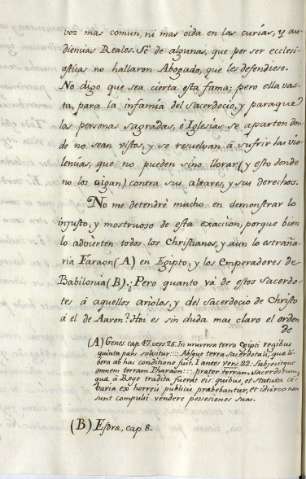 voz mas comun, ni mas oida en las curias, y au-
diencias Reales. Sé de algunas, que por ser eclesi-
asticas no hallaron Abogado, que les defendiese.
No digo que sea cierta esta fama; pero ella vas-
ta, para la infamia del Sacerdocio, y para que
las personas sagradas, è Iglesias se aparten don-
de no sean vistas, y se resuelvan à sufrir las vio-
lencias, que no pueden sino llorar (y esto donde
no los oigan) contra sus altares, y sus derechos.
No me detendrè mucho, en demonstrar lo
injusto, y mostruoso de esta exaccion, porque bien
lo advierten todos los Christianos, y aun lo estraña-
ria Faraon (A) en Egipto, y los Emperadores de
Babilonia (B); Pero quanto và de estos Sacerdo-
tes à aquellos ariolos, y del Sacerdocio de Christo
à el de Aaron? Hai es sin duda mas claro el orden
de
(A) Genes. cap. 47. vers. 26. In universa terra Egipti regibus
quinta pars solvitur::: Absque terra sacerdotali, que li-
bera ab hac conditione fuit. I antes vers. 22. Subjecitque
omnem terram Pharaoni::: praeter terram sacerdotum,
que à Rege tradita fuerat eis: quibus, et statuta ci-
baria ex horreis publicis prebebantur, et idcirco non
sunt compulsi vendere posesiones suas.
(B) Esdra, cap 8.